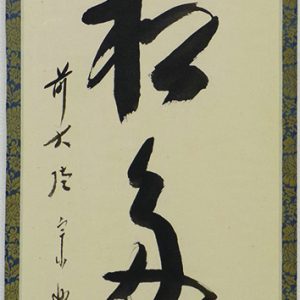 松無
前大徳宗